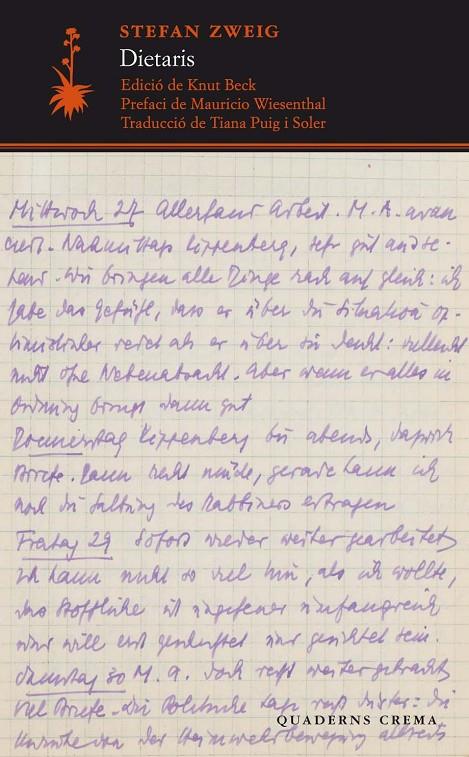 STEFAN ZWEIG
Dietaris
Edició de Knut Beck
Prefaci de Mauricio Wiesenthal
Traducció de Tiana Puig i Soler
Mittwoch 27 Allerhand Arbeit. M. A. avan
ciert. Nachmittags Kippenberg, sehr gut and
Wir bringen alle Dinge rasch auf gleich: ich
habe das Gefühl, dass er über die Situation op-
timistischer redet als er über sie denkt: vielleicht
nicht ohne Nebenabsicht. Aber wenn er alles in
Ordnung bringt dann gut
Donnerstag Kippenberg bis abends, dazwisch
Briefe. Dann recht müde, gerade kann ich
noch die Salbung des Rabbiners ertragen
Freitag 29 Sofort wieder weiter gearbeitet
Ich kann nicht so viel hin, als ich wollte,
das Stoffliche ist ungeheuer umfangreich
und will erst gesichtet sein.
Samstag 30 M. A. doch weiter gebracht
viel Briefe. Die politische Lage düster: die
von der Heimwehrbewegung
QUADERNS CREMA